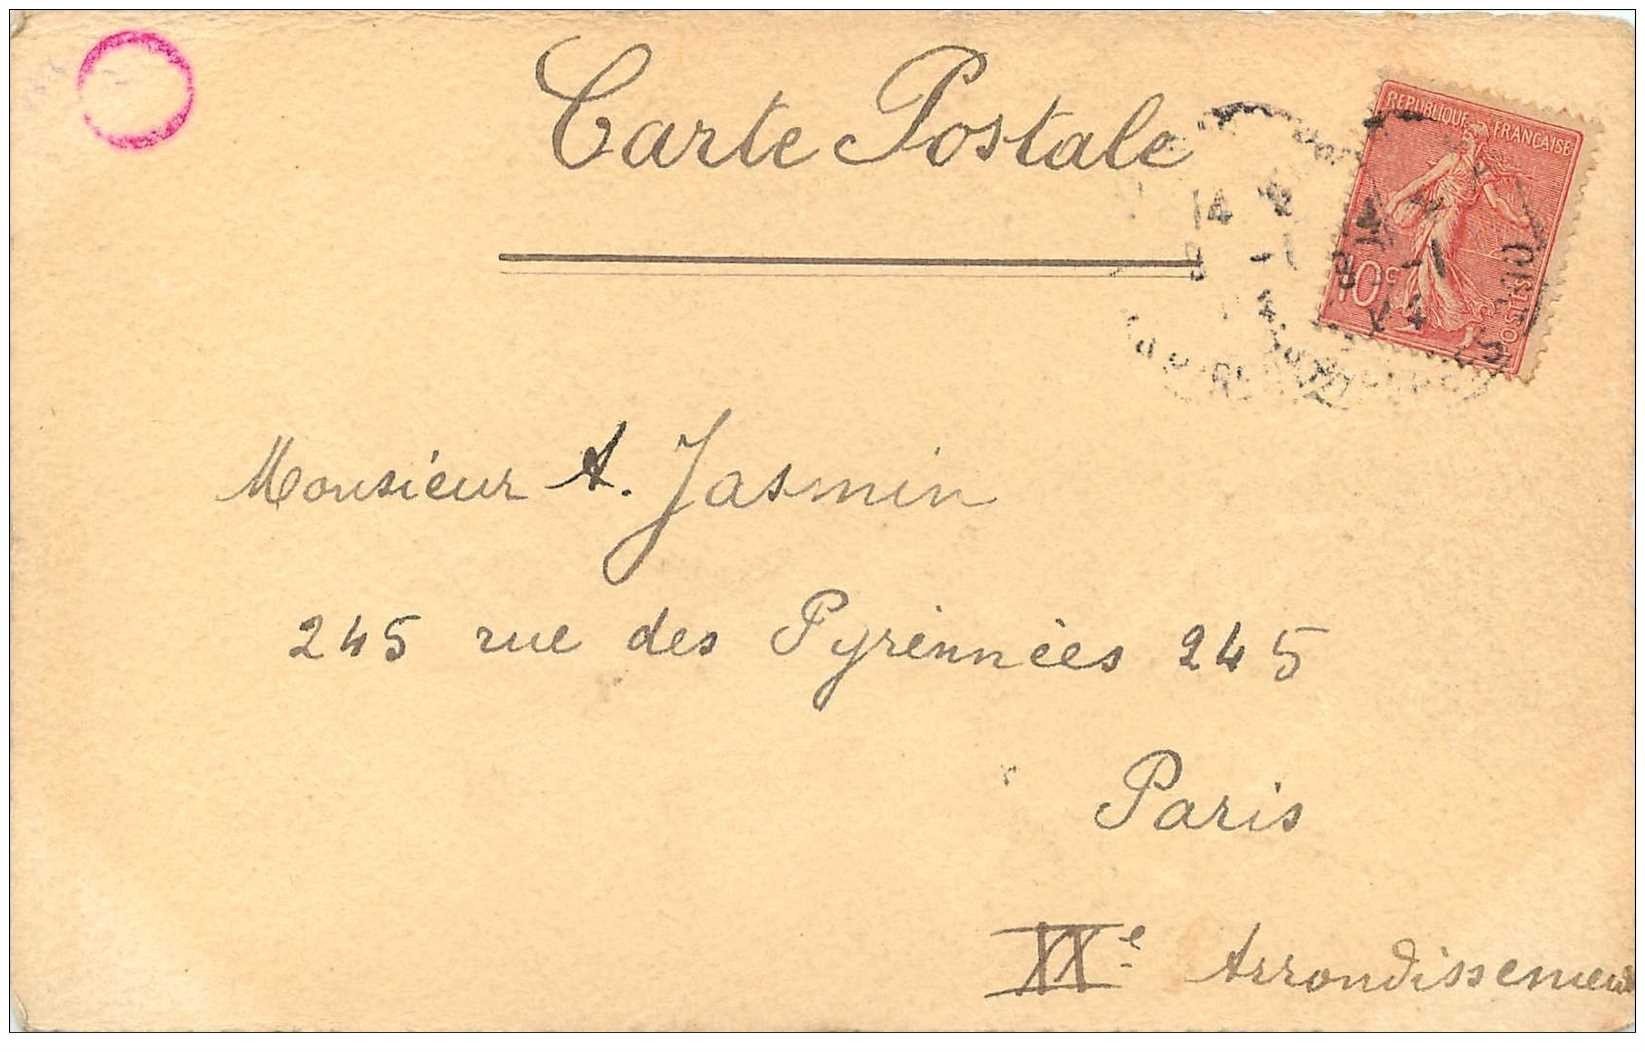 Carte Postale
REPUBLIQUE FRANÇAISE
10c
POSTES
14
-1
8 -1
Monsieur A. Jasmin
245 rue des Pyrénnées 245
Paris
XXe Arrondissement